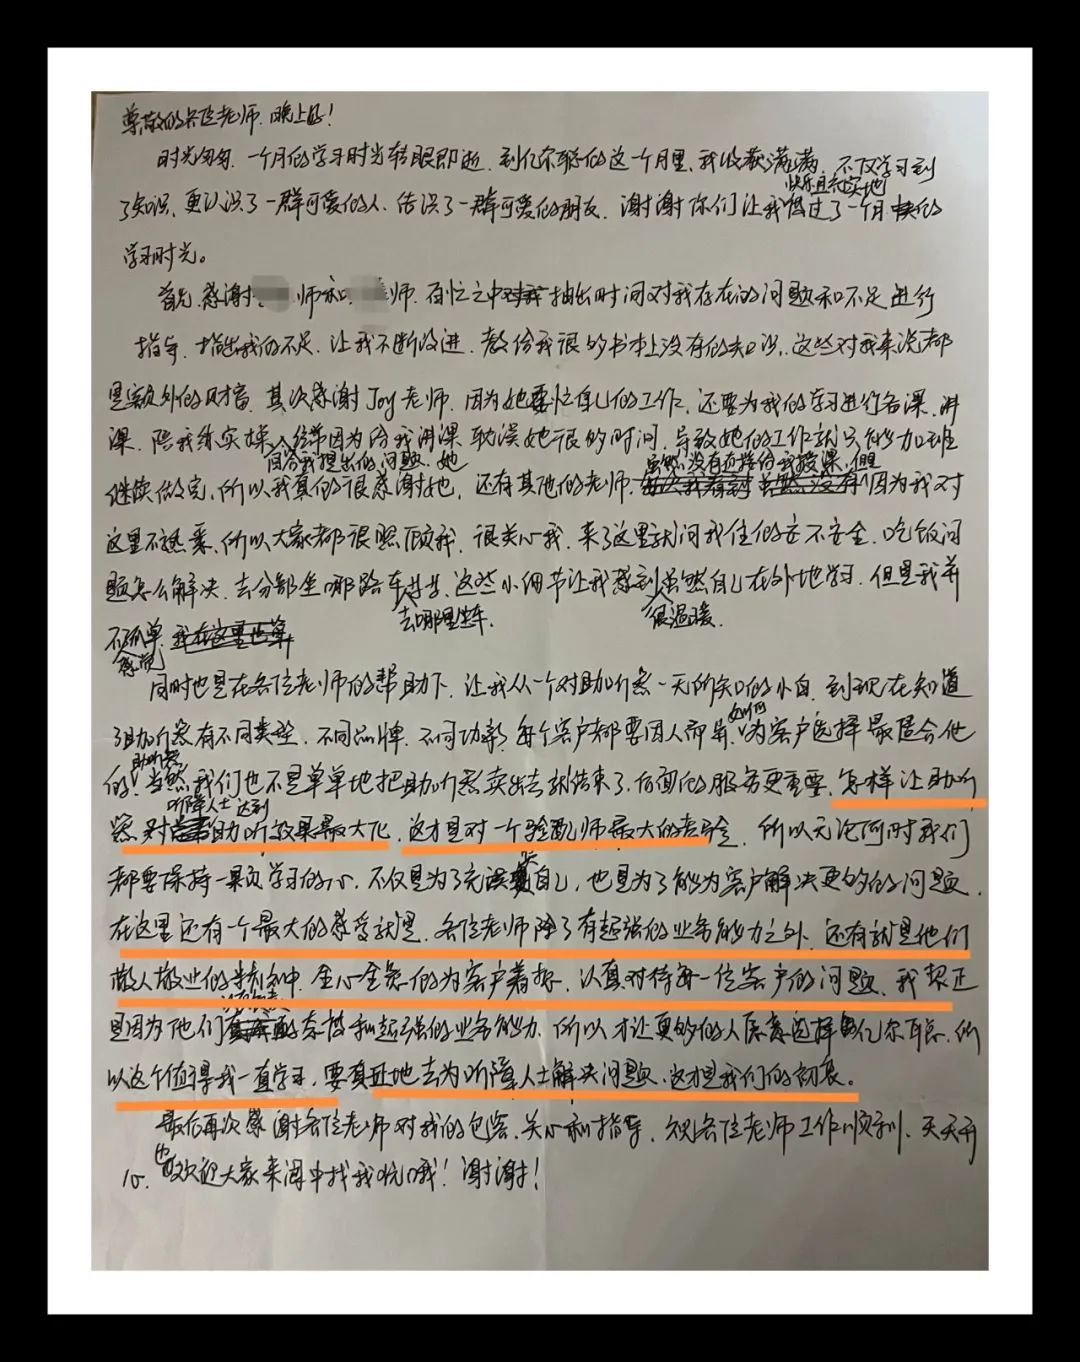 尊敬的各位老师，晚上好！
时光匆匆，一个月的学习时光转眼即逝，到亿尔聪的这一个月里，我收获满满，不仅学习到
快乐且充实地
了知识，更认识了一群可爱的人，结识了一群可爱的朋友，谢谢你们让我度过了一个月的
学习时光。
首先，感谢 师和 师，百忙之中抽出时间对我存在的问题和不足进行
指导，指出我的不足，让我不断改进，教给我很多书本上没有的知识，这些对我来说都
是额外的财富，其次感谢Joy老师，因为她要忙自己的工作，还要为我的学习进行备课，讲
课，陪我练实操，经常因为给我讲课 耽误她很多时间，导致她的工作就只能加班
回答我提出的问题，她
虽然没有直接给我授课，但
继续做完，所以我真的很感谢她，还有其他的老师，因为我对
这里不熟悉，所以大家都很照顾我，很关心我，来了这里就问我住的安不安全，吃饭问
题怎么解决，去分部坐哪路车等等，这些小细节让我感到虽然自己在外地学习，但是我并
去哪里坐车，
很温暖，
不孤单，
感觉
同时也是在各位老师的帮助下，让我从一个对助听器一无所知的小白，到现在知道
了助听器有不同类型，不同品牌，不同功率，每个客户都要因人而异，为客户选择最适合他
如何
助听器
的！当然，我们也不是单单地把助听器卖出去就结束了，后面的服务更重要，怎样让助听
听障人士达到
器对助听效果最大化，这才是对一个验配师最大的考验，所以无论何时我们
都要保持一颗学习的心，不仅是为了充实自己，也是为了能为客户解决更多的问题，
在这里还有一个最大的感受就是，各位老师除了有超强的业务能力之外，还有就是他们
做人敬业的精神，全心全意的为客户着想，认真对待每一位客户的问题，我想正
是因为他们态度和超强的业务能力，所以才让更多的人愿意选择亿尔聪，所
以这个值得我一直学习，要真正地去为听障人士解决问题，这才是我们的初衷。
最后再次感谢各位老师对我的包容、关心和指导，祝各位老师工作顺利，天天开
心，也欢迎大家来阆中找我玩哦！谢谢！